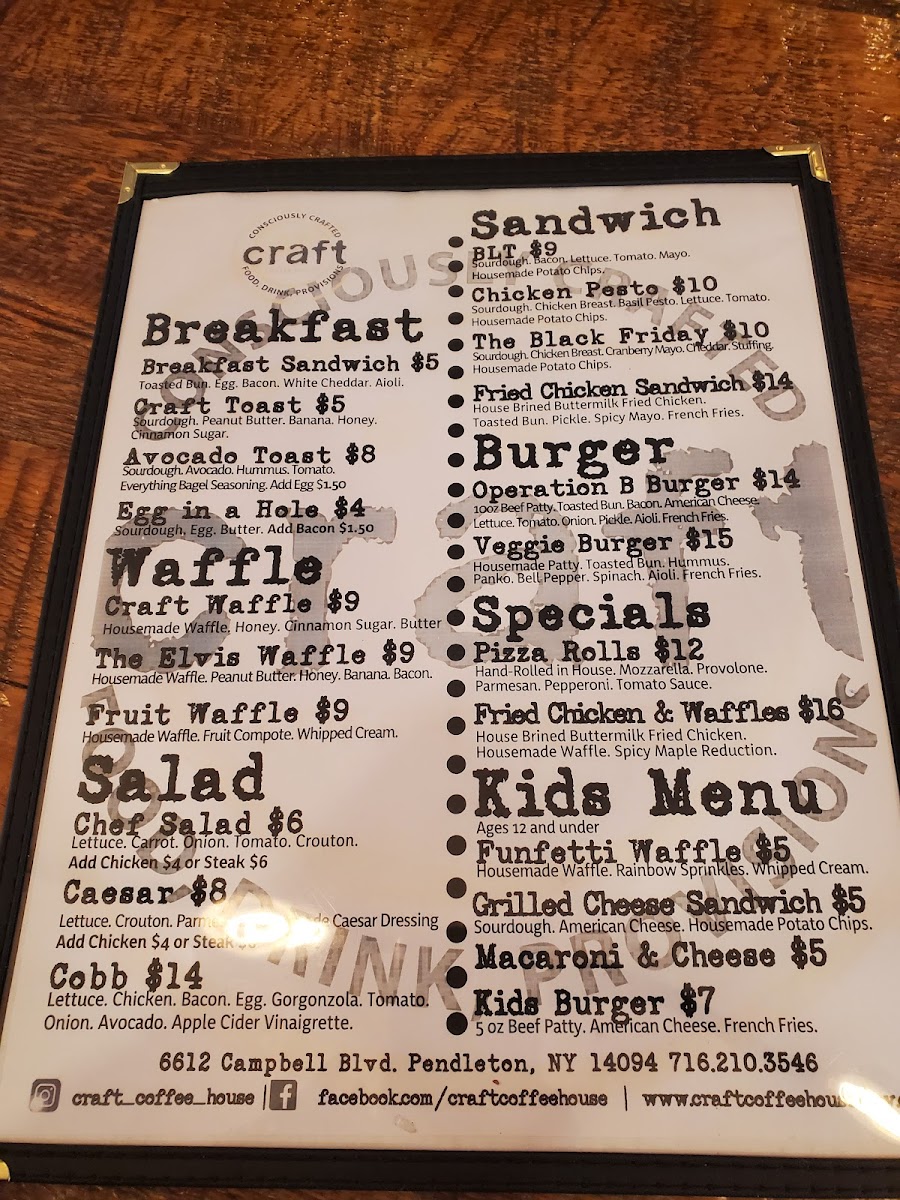 CONSCIOUSLY CRAFTED
craft
FOOD, DRINK, PROVISIONS
Breakfast
Breakfast Sandwich $5
Toasted Bun. Egg. Bacon. White Cheddar. Aioli.
Craft Toast $5
Sourdough. Peanut Butter. Banana. Honey.
Cinnamon Sugar.
Avocado Toast $8
Sourdough. Avocado. Hummus. Tomato.
Everything Bagel Seasoning. Add Egg $1.50
Egg in a Hole $4
Sourdough. Egg. Butter. Add Bacon $1.50
Waffle
Craft Waffle $9
Housemade Waffle. Honey. Cinnamon Sugar. Butter
The Elvis Waffle $9
Housemade Waffle. Peanut Butter. Honey. Banana. Bacon.
Fruit Waffle $9
Housemade Waffle. Fruit Compote. Whipped Cream.
Salad
Chef Salad $6
Lettuce. Carrot. Onion. Tomato. Crouton.
Add Chicken $4 or Steak $6
Caesar $8
Lettuce. Crouton. Caesar Dressing
Add Chicken $4 or Steak
Cobb $14
Lettuce. Chicken. Bacon. Egg. Gorgonzola. Tomato.
Onion. Avocado. Apple Cider Vinaigrette.
Sandwich
BLT $9
Sourdough. Bacon. Lettuce. Tomato. Mayo.
Housemade Potato Chips.
Chicken Pesto $10
Sourdough. Chicken Breast. Basil Pesto. Lettuce. Tomato.
Housemade Potato Chips.
The Black Friday $10
Sourdough. Chicken Breast. Cranberry Mayo. Cheddar. Stuffing.
Housemade Potato Chips.
Fried Chicken Sandwich $14
House Brined Buttermilk Fried Chicken.
Toasted Bun. Pickle. Spicy Mayo. French Fries.
Burger
Operation B Burger $14
10oz Beef Patty. Toasted Bun. Bacon. American Cheese.
Lettuce. Tomato. Onion. Pickle. Aioli. French Fries.
Veggie Burger $15
Housemade Patty. Toasted Bun. Hummus.
Panko. Bell Pepper. Spinach. Aioli. French Fries.
Specials
Pizza Rolls $12
Hand-Rolled in House. Mozzarella. Provolone.
Parmesan. Pepperoni. Tomato Sauce.
Fried Chicken & Waffles $16
House Brined Buttermilk Fried Chicken.
Housemade Waffle. Spicy Maple Reduction.
Kids Menu
Ages 12 and under
Funfetti Waffle $5
Housemade Waffle. Rainbow Sprinkles. Whipped Cream.
Grilled Cheese Sandwich $5
Sourdough. American Cheese. Housemade Potato Chips.
Macaroni & Cheese $5
Kids Burger $7
5 oz Beef Patty. American Cheese. French Fries.
6612 Campbell Blvd. Pendleton, NY 14094 716.210.3546
craft_coffee_house | facebook.com/craftcoffeehouse |
CONSCIOUSLY CRAFTED
craft
FOOD, DRINK, PROVISIONS